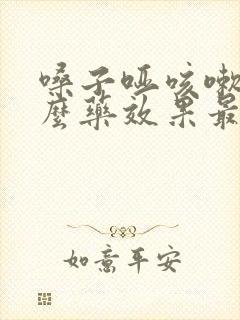 嗓子哑咳嗽
麽药效果最
如意平安